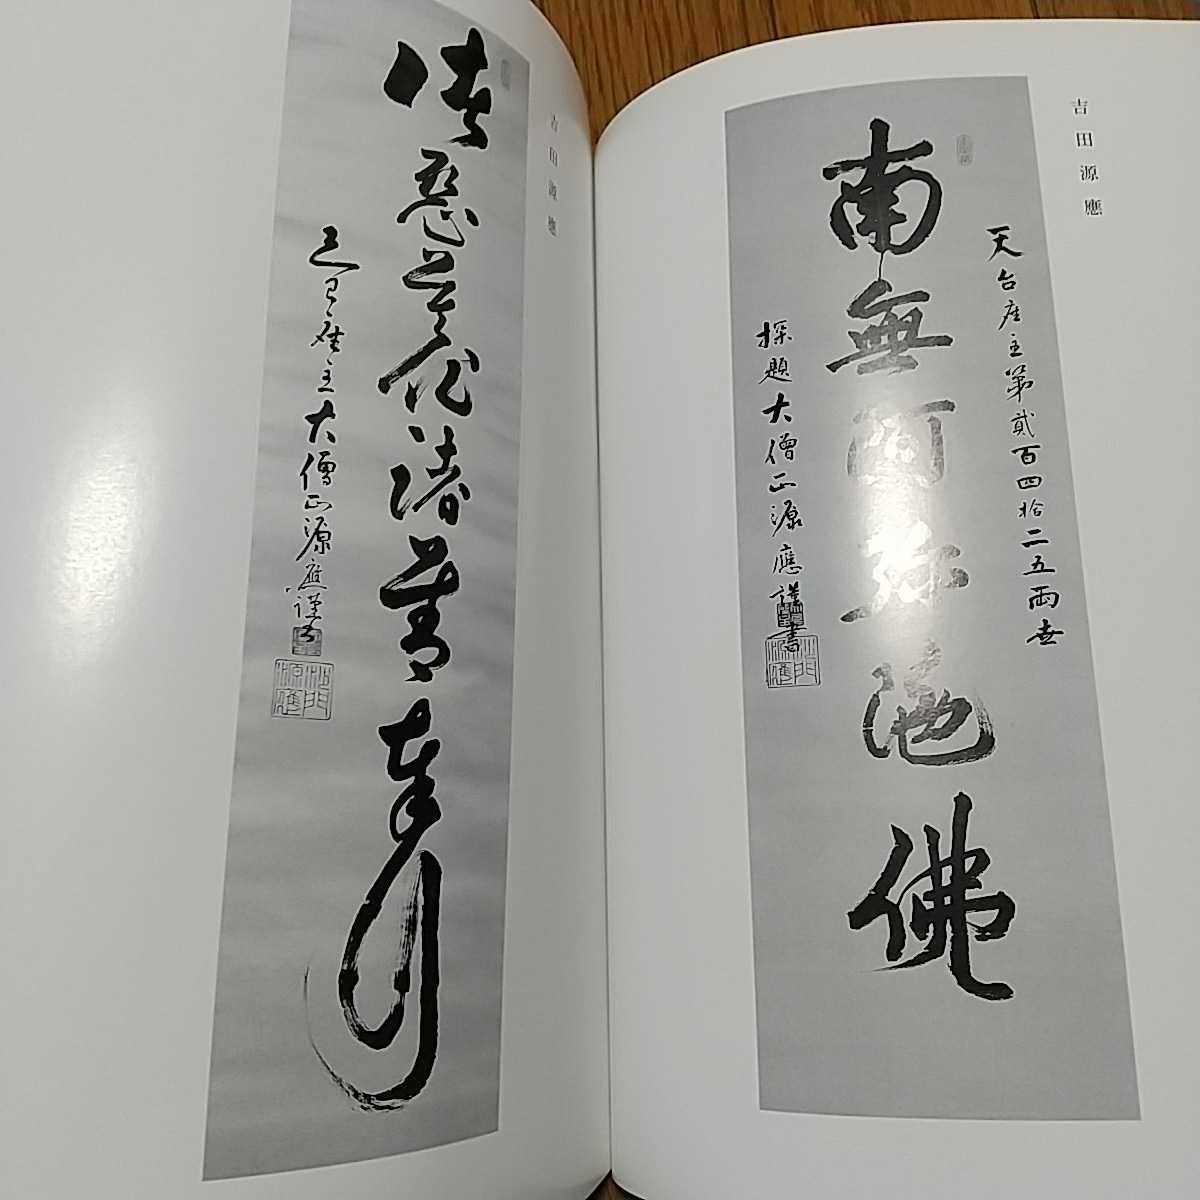 吉田源應
天台座主第貳百四拾二五兩世
南無阿弥陀佛
探題大僧正源應謹書
吉田源應
諸惡莫作諸善奉行
座主大僧正源應謹書